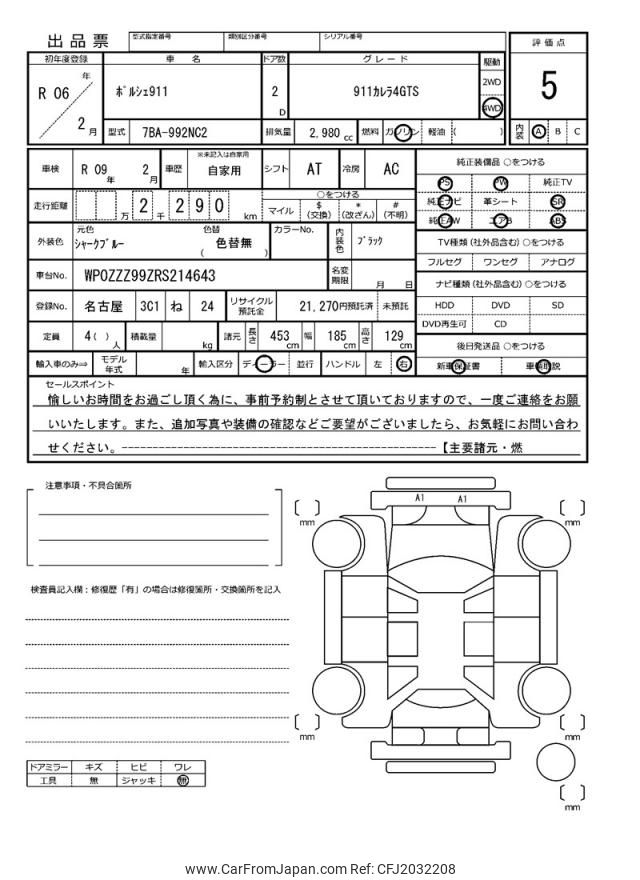 出品票
型式指定番号 類別区分番号 シリアル番号
評価点
5
内装 A B C
初年度登録 車名 ドア数 グレード 駆動
R 06 年 2 月
ﾎﾟﾙｼｪ911 2 D 911ｶﾚﾗ4GTS
2WD
4WD
型式 7BA-992NC2 排気量 2,980 cc 燃料 ガソリン 軽油 ( )
車検 R 09 年 2 月 車歴 ※未記入は自家用 自家用 シフト AT 冷房 AC
走行距離 万 2 千 2 9 0 km
○をつける
マイル $(交換) *(改ざん) #(不明)
外装色 元色 ｼｬｰｸﾌﾞﾙｰ 色替 ( 色替無 ) カラーNo. 内装色 ﾌﾞﾗｯｸ
車台No. WP0ZZZ99ZRS214643 名変期限 月 日
登録No. 名古屋 3C1 ね 24 リサイクル預託金 21,270円預託済 未預託
定員 4( ) 人 積載量 kg 諸元 長さ 453 cm 幅 185 cm 高さ 129 cm
輸入車のみ⇒ モデル年式 年 輸入区分 ディーラー 並行 ハンドル 左 右
純正装備品 ○をつける
PS PW 純正TV
純正ナビ 革シート SR
純正AW エアB ABS
TV種類 (社外品含む) ○をつける
フルセグ ワンセグ アナログ
ナビ種類 (社外品含む) ○をつける
HDD DVD SD
DVD再生可 CD
後日発送品 ○をつける
新車保証書 車輌取説
セールスポイント
愉しいお時間をお過ごし頂く為に、事前予約制とさせて頂いておりますので、一度ご連絡をお願
いいたします。また、追加写真や装備の確認などご要望がございましたら、お気軽にお問い合わ
せください。------------------------------------------------【主要諸元・燃
注意事項・不具合箇所
検査員記入欄：修復歴「有」の場合は修復箇所・交換箇所を記入
A1 A1
mm mm
mm mm
mm
ドアミラー キズ ヒビ ワレ
工具 無 ジャッキ 無
www.CarFromJapan.com Ref: CFJ2032208